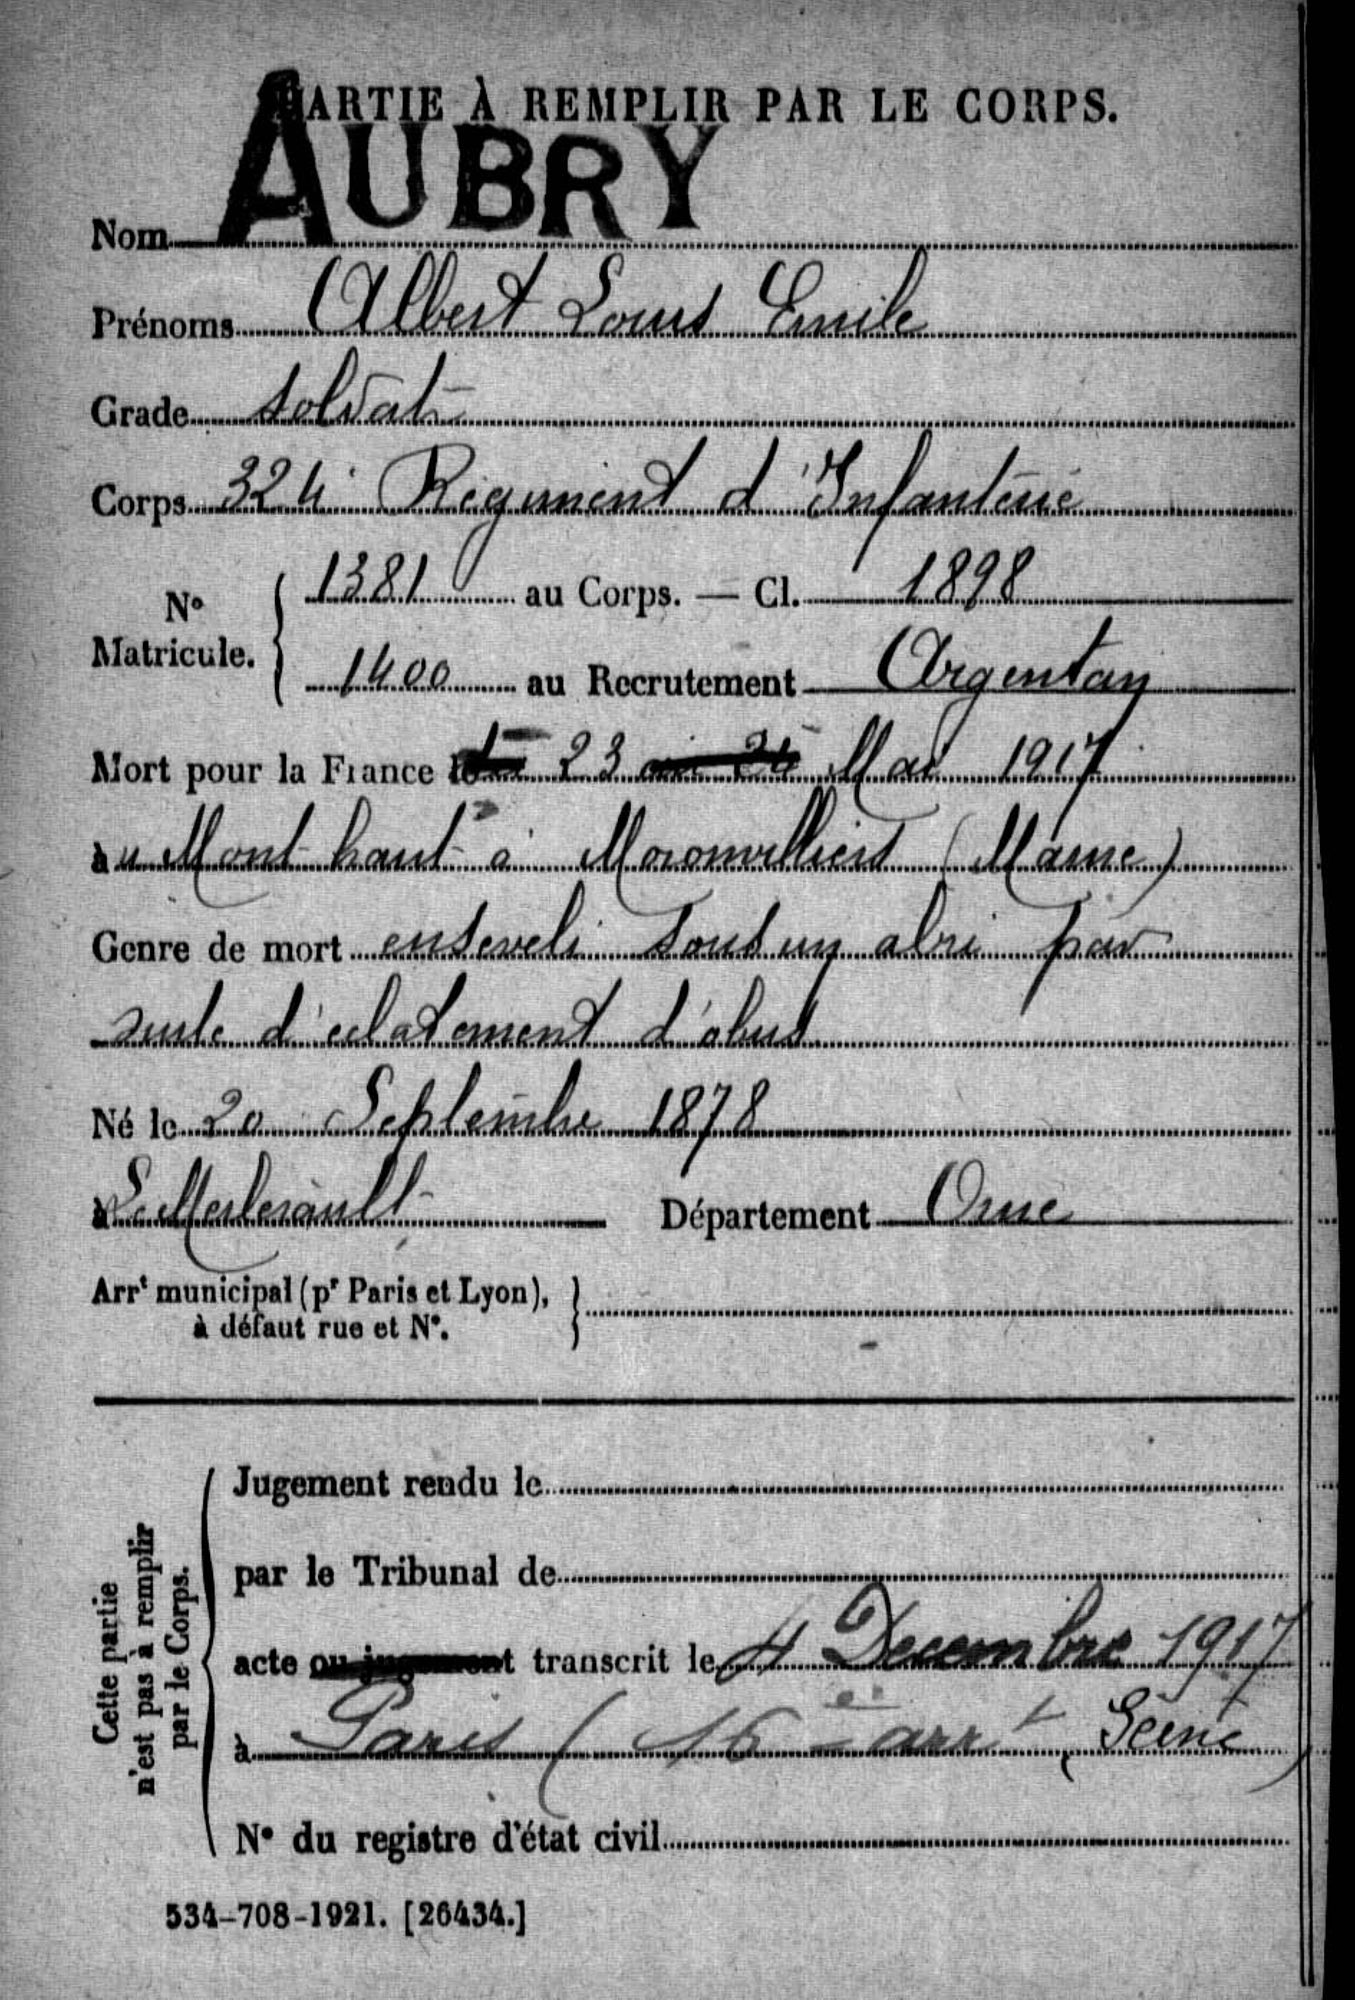 PARTIE À REMPLIR PAR LE CORPS.
Nom AUBRY
Prénoms Albert Louis Emile
Grade soldat
Corps 324e Régiment d'Infanterie
No Matricule. { 1381 au Corps. — Cl. 1898
1400 au Recrutement Argentan
Mort pour la France le 23 Mai 1917
au Mont-haut à Moronvilliers (Marne)
Genre de mort enseveli sous un abri par
suite d'éclatement d'obus
Né le 20 Septembre 1878
à Le Merlerault Département Orne
Arrt municipal (pr Paris et Lyon), à défaut rue et No. }
Cette partie n'est pas à remplir par le Corps.
Jugement rendu le
par le Tribunal de
acte ou jugement transcrit le 4 Decembre 1917
à Paris (16e arrt, Seine)
No du registre d'état civil
534-708-1921. [26434.]